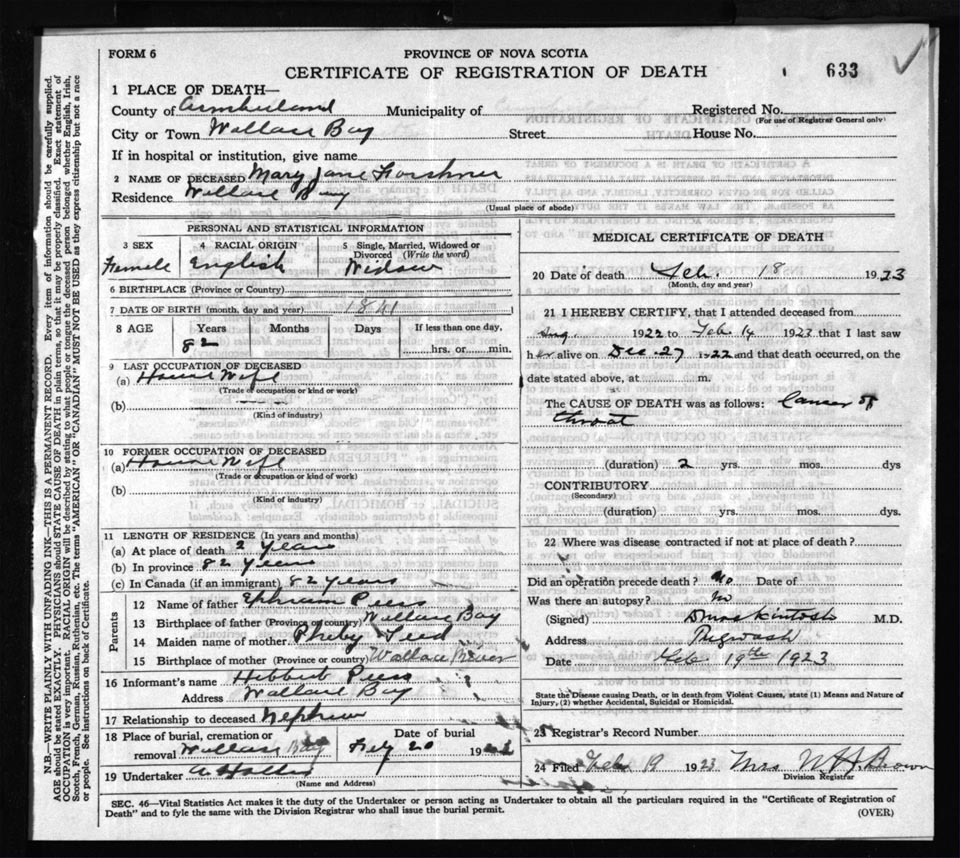 FORM 6
PROVINCE OF NOVA SCOTIA
CERTIFICATE OF REGISTRATION OF DEATH
633
1 PLACE OF DEATH—
County of Cumberland Municipality of Cumberland Registered No.
(For use of Registrar General only)
City or Town Wallace Bay Street House No.
If in hospital or institution, give name
2 NAME OF DECEASED Mary Jane Forshner
Residence Wallace Bay
(Usual place of abode)
PERSONAL AND STATISTICAL INFORMATION
3 SEX
Female
4 RACIAL ORIGIN
English
5 Single, Married, Widowed or Divorced (Write the word)
Widow
6 BIRTHPLACE (Province or Country)
7 DATE OF BIRTH (month, day and year) 1841
8 AGE Years Months Days If less than one day,
82 hrs. or min.
9 LAST OCCUPATION OF DECEASED
(a) House Wife
(Trade or occupation or kind or work)
(b)
(Kind of industry)
10 FORMER OCCUPATION OF DECEASED
(a) House Wife
(Trade or occupation or kind or work)
(b)
(Kind of industry)
11 LENGTH OF RESIDENCE (In years and months)
(a) At place of death 2 years
(b) In province 82 years
(c) In Canada (if an immigrant) 82 years
Parents
12 Name of father Ephram Peers
13 Birthplace of father (Province or country) Wallace Bay
14 Maiden name of mother Pheby Teed
15 Birthplace of mother (Province or country) Wallace River
16 Informant's name Hibbert Peers
Address Wallace Bay
17 Relationship to deceased Nephew
18 Place of burial, cremation or removal Wallace Bay
Date of burial
20 19
19 Undertaker A
(Name and Address)
MEDICAL CERTIFICATE OF DEATH
20 Date of death Feb. 18 1923
(Month, day and year)
21 I HEREBY CERTIFY, that I attended deceased from
Aug. 1922 to Feb. 14 1923 that I last saw
her alive on Dec. 27 1922 and that death occurred, on the
date stated above, at m.
The CAUSE OF DEATH was as follows: Cancer of
throat
(duration) 2 yrs. mos. dys
CONTRIBUTORY
(Secondary)
(duration) yrs. mos. dys.
22 Where was disease contracted if not at place of death?
Did an operation precede death? No Date of
Was there an autopsy? no
(Signed) D Mackintosh M.D.
Address Pugwash
Date Feb. 19th 1923
State the Disease causing Death, or in death from Violent Causes, state (1) Means and Nature of
Injury, (2) whether Accidental, Suicidal or Homicidal.
23 Registrar's Record Number
24 Filed Feb 19 1923 Mrs W H Brown
Division Registrar
SEC. 46—Vital Statistics Act makes it the duty of the Undertaker or person acting as Undertaker to obtain all the particulars required in the "Certificate of Registration of
Death" and to fyle the same with the Division Registrar who shall issue the burial permit.
(OVER)
N.B.—WRITE PLAINLY WITH UNFADING INK—THIS IS A PERMANENT RECORD. Every item of information should be carefully supplied.
AGE should be stated EXACTLY. PHYSICIANS should STATE CAUSE OF DEATH in plain terms, so that it may be properly classified. Exact statement of
OCCUPATION is very important. RACIAL ORIGIN will be described by stating to what people or tongue the deceased person belonged whether English, Irish,
Scotch, French, German, Russian, Ruthenian, etc. The terms "AMERICAN" or "CANADIAN" MUST NOT BE USED as they express citizenship but not a race
or people. See instructions on back of Certificate.